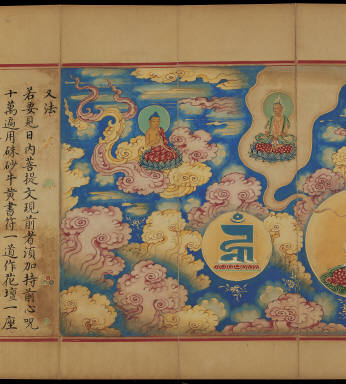 又法
若要見日內菩提文現前者須加持前心呪
十萬遍用硃砂牛黃書符一道作花壇一座